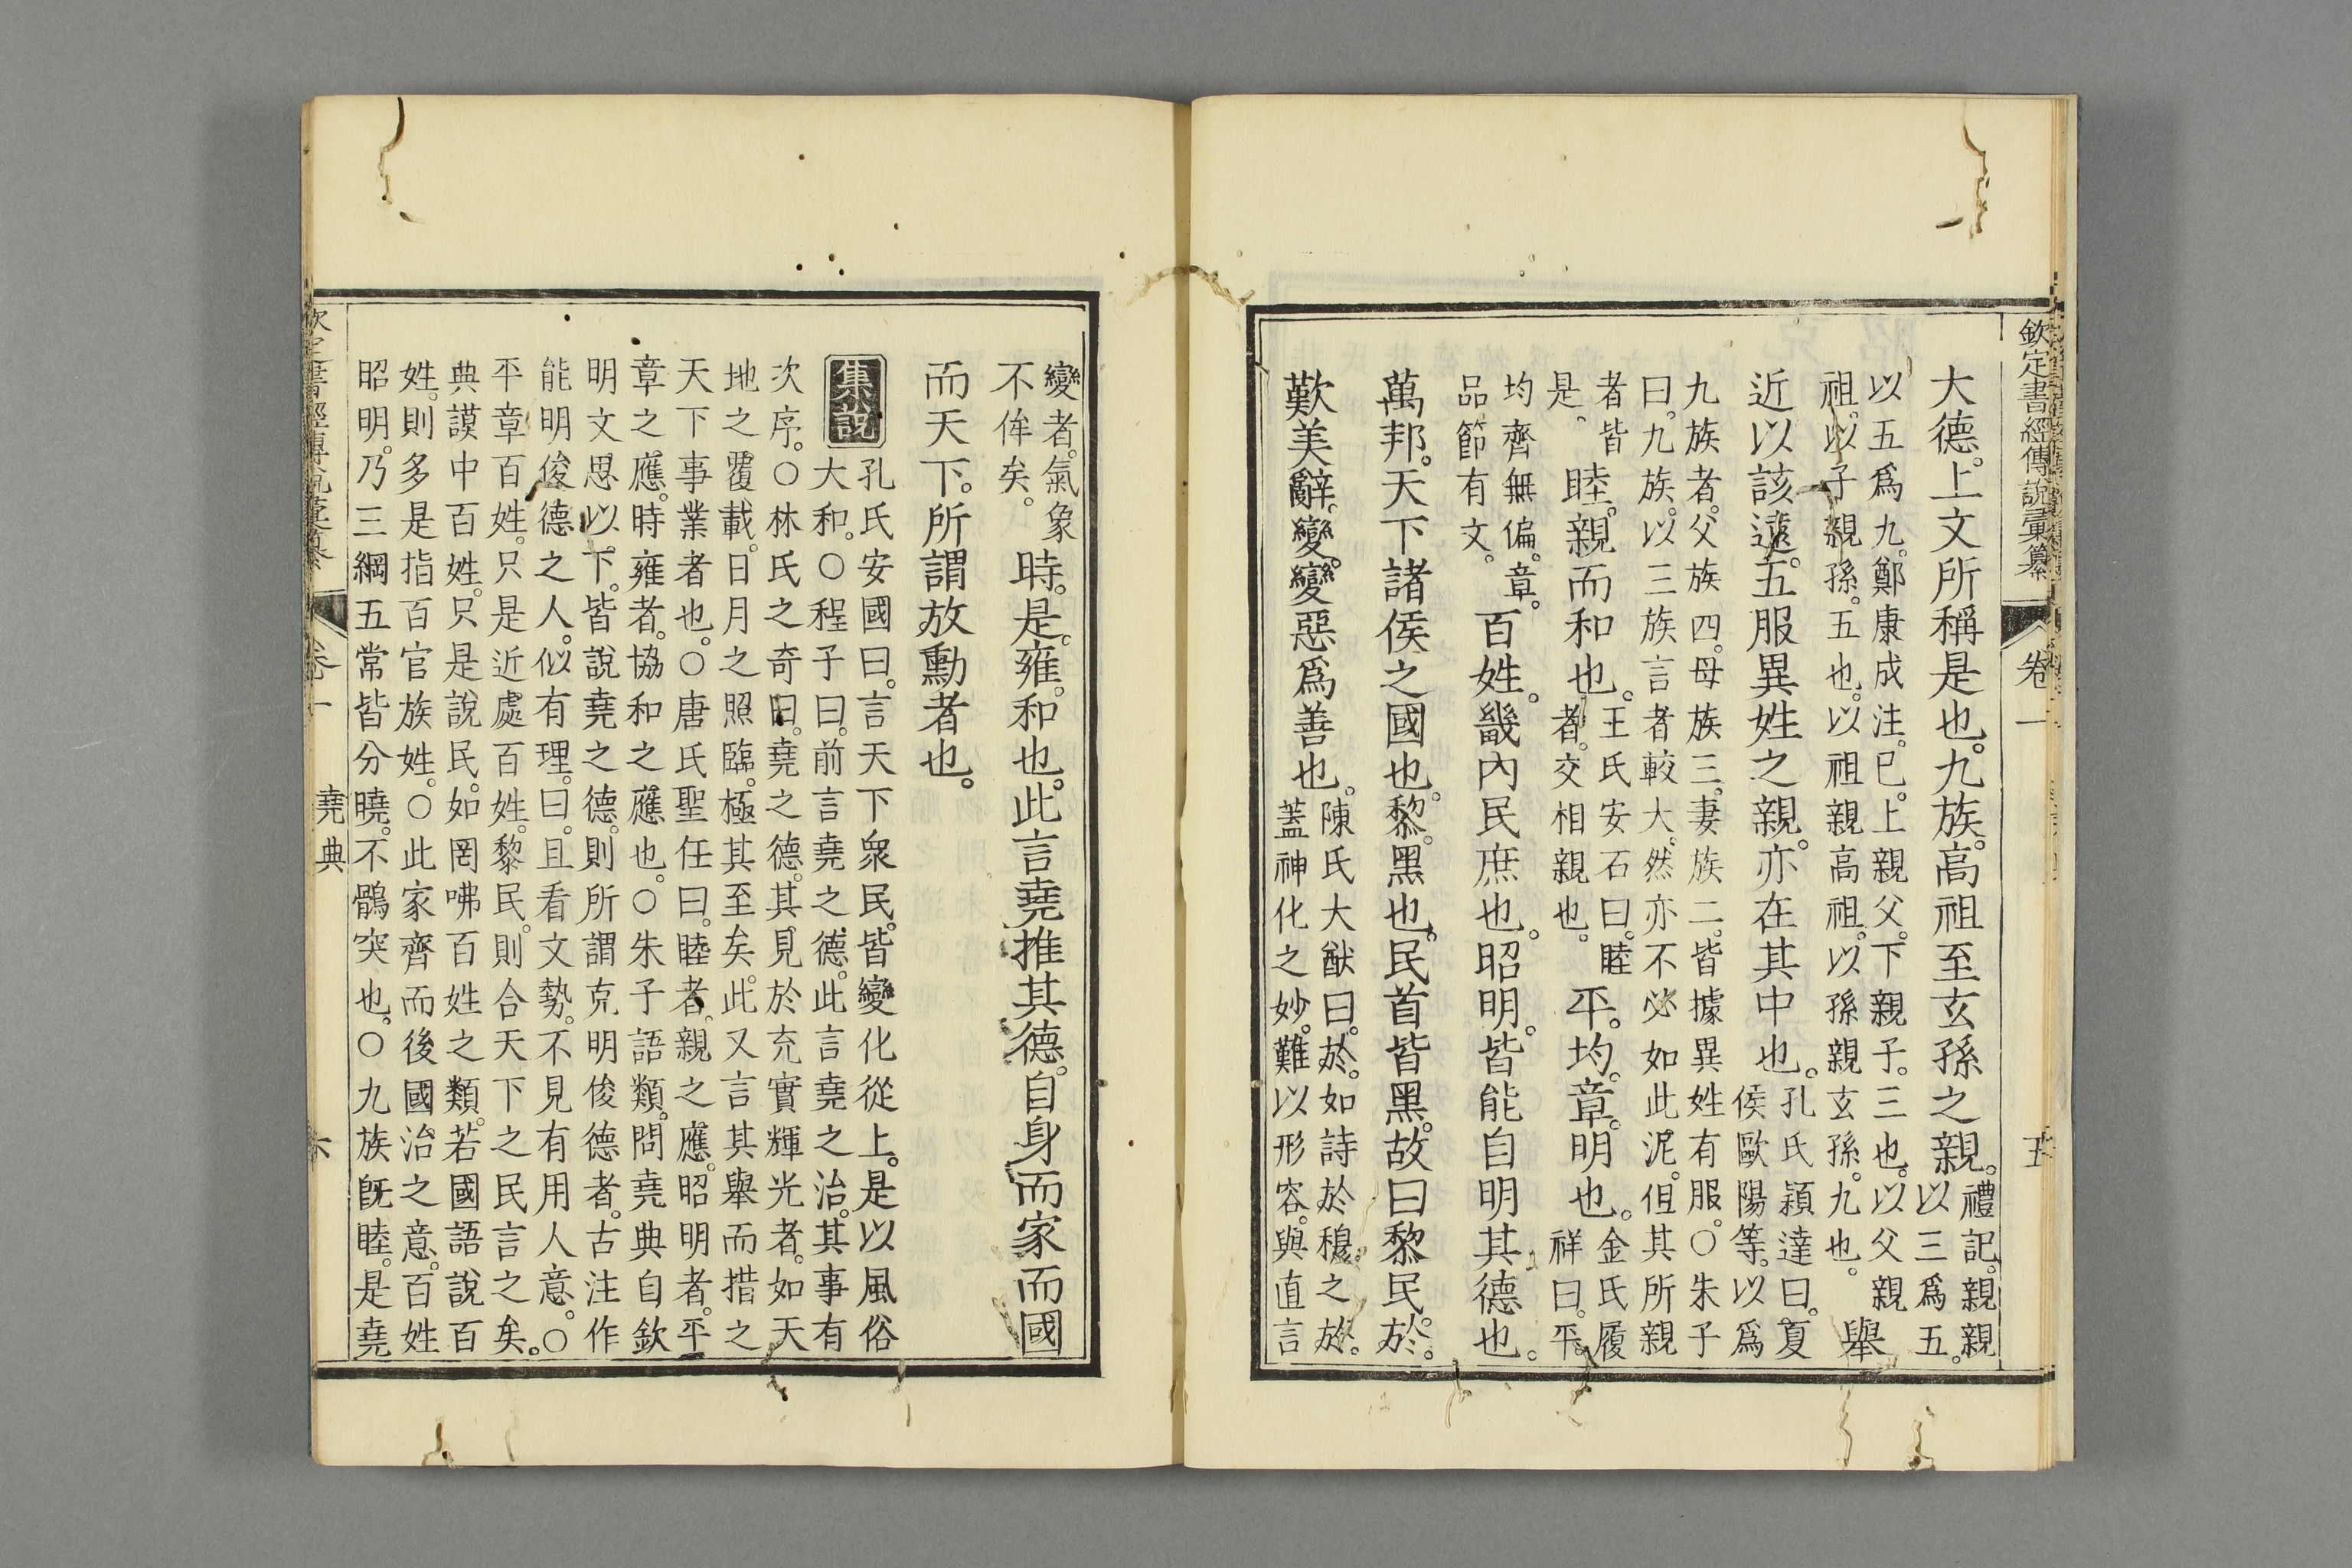 欽定書經傳說彙纂 卷一 五
大德。上文所稱是也。九族。高祖至玄孫之親。
禮記。親親
以三爲五。
以五爲九。鄭康成注。已。上親父。下親子。三也。以父親
祖。以子親孫。五也。以祖親高祖。以孫親玄孫。九也。
舉
近以該遠。五服異姓之親。亦在其中也。
孔氏穎達曰。夏
侯歐陽等。以爲
九族者。父族四。母族三。妻族二。皆據異姓有服。○朱子
曰。九族。以三族言者較大。然亦不必如此泥。但其所親
者皆
是。
睦。親而和也。
王氏安石曰。睦
者。交相親也。
平。均。章。明也。
金氏履
祥曰。平。
均齊無偏。章。
品節有文。
百姓。畿內民庶也。昭明。皆能自明其德也。
萬邦。天下諸侯之國也。黎。黑也。民首皆黑。故曰黎民。於。
歎美辭。變。變惡爲善也。
陳氏大猷曰。於。如詩於穆。之於。
蓋神化之妙。難以形容。與直言
變者。氣象
不侔矣。
時。是。雍。和也。此言堯推其德。自身而家而國
而天下。所謂放勳者也。
集說
孔氏安國曰。言天下衆民。皆變化從上。是以風俗
大和。○程子曰。前言堯之德。此言堯之治。其事有
次序。○林氏之奇曰。堯之德。其見於充實輝光者。如天
地之覆載。日月之照臨。極其至矣。此又言其舉而措之
天下事業者也。○唐氏聖任曰。睦者。親之應。昭明者。平
章之應。時雍者。協和之應也。○朱子語類。問堯典自欽
明文思以下。皆說堯之德。則所謂克明俊德者。古注作
能明俊德之人。似有理。曰。且看文勢。不見有用人意。○
平章百姓。只是近處百姓。黎民。則合天下之民言之矣。
典謨中百姓。只是說民。如罔咈百姓之類。若國語說百
姓。則多是指百官族姓。○此家齊而後國治之意。百姓
昭明。乃三綱五常皆分曉。不鶻突也。○九族旣睦。是堯
欽定書經傳說彙纂 卷一 堯典 六